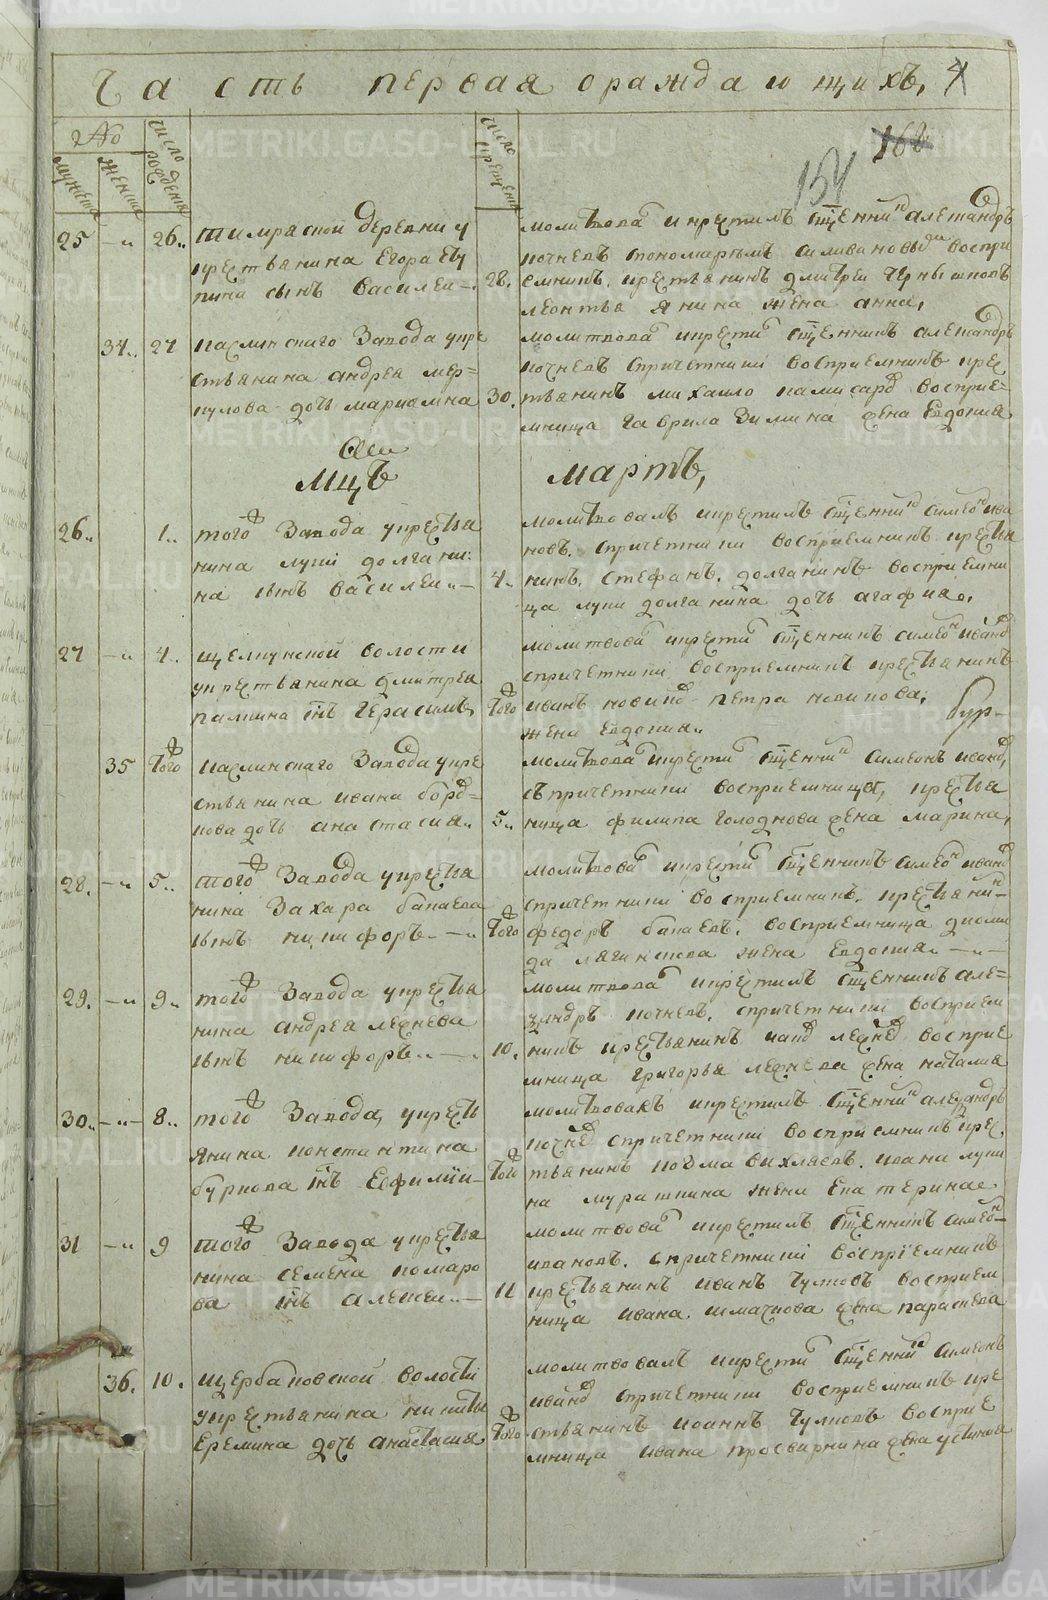 Часть первая ораждающихъ, 4
160
154
№
мужеска
женска
число рожденья
число крещения
25 -" 26.. тимраской деревни у
крестьянина Егора
пина сынъ Василеи -.
28.
молитвовал и крестилъ сщенникъ алеѯандръ
почневъ пономарьмъ селивановы воспри
емникъ крестьянинъ дмитреи Чернышловъ
леонтья Янина жена анна,
34.. 27 каслинскаго Завода укре
стьянина андрея мер=
кулова дочь мариамна
30.
молитвовал икрести сщенникъ алеѯандръ
почневъ спричетники восприемникъ крес
тьянинъ михаило восприе=
мница гаврила Зимина жена Евдокия
Мцъ мартъ,
26.. 1.. того Завода укрестья
нина луки долгани:
на сынъ василеи..-
4..
молитвовалъ икрестилъ сщенникъ симеон ива
новъ. спричетники восприемникъ крестья
нинъ. стефанъ. долганинъ восприемни
ца луки долганина дочь агафия..
27 -" 4.. щелкунской волости
укрестьянина дмитрея
пашина снъ Герасимъ
Того
молитвовал икрести сщенникъ симеон иванов
спричетники восприемникъ крестьянинъ
иванъ новиков петра новикова. бур-
жена евдокия..
35 Того каслинскаго Завода укре
стьянина ивана борд=
кова дочь анастасия..
5..
молитвовал икрести сщенник симеонъ иванов,
съпричетники восприемница, крестья
нница филипа голоднова жена марина,
28. -" 5.. того Завода укрестья
нина Захара бапаева
сынъ никифоръ.-"-
Того
молитвовал икрести сщенникъ симеон иванов
спричетники восприемникъ. крестьянин-
федоръ бапаевъ. восприемница диоми
да легинтова жена Евдокия.-"-"-
29. -" 9.. того Завода укрестья
нина андрея лежнева
сынъ никифоръ..-"-
10.
молитвовал икрестилъ сщенникъ але=
ѯандръ почневъ. спричетники восприем
никъ крестьянинъ лежнев восприе
мница григорья лежнева жена наталия
30.. -"- 8.. того Завода, укресть
янина константина
буркова снъ Евфимии-
Того
молитвовалъ икрестилъ сщенник алеѯандръ
почнев спричетники восприемникъ крес.
тьянинъ козма вихляевъ. ивана луки
на мурашкина жена Екатерина..
31 -" 9 того Завода укрестья
нина семена комаро
ва снъ алеѯеи..-
11
молитвовал икрестилъ сщенникъ симеон-
ивановъ. спричетники восприемникъ
крестьянинъ иванъ Чулковъ восприем
ница ивана. шмачкова жена параскева
36. 10. щербаковской волости
укрестьянина никиты
Еремина дочь анастасия
Того
молитвовалъ икрести сщенник симеонъ
иванов спричетники восприемникъ кре
стьянинъ иоаннъ Чулковъ восприе
мница ивана просвирнина жена устиния